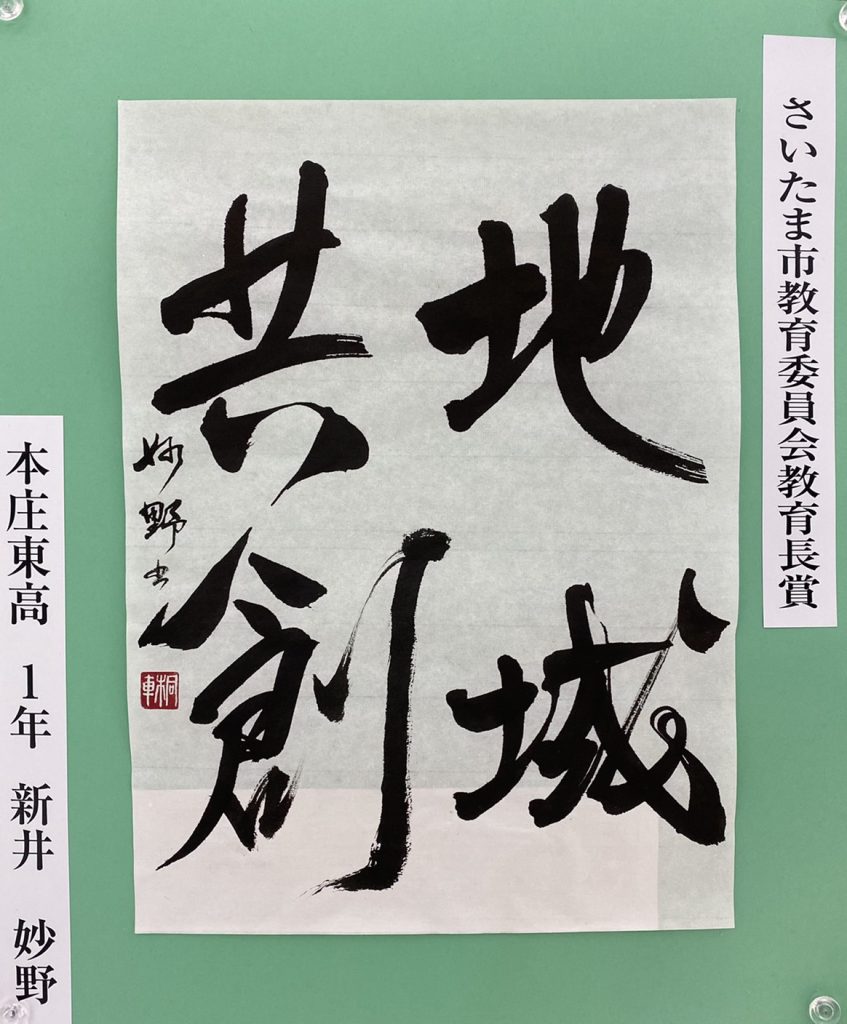 さいたま市教育委員会教育長賞
地域
共創
妙野書
桐車
本庄東高 1年 新井 妙野